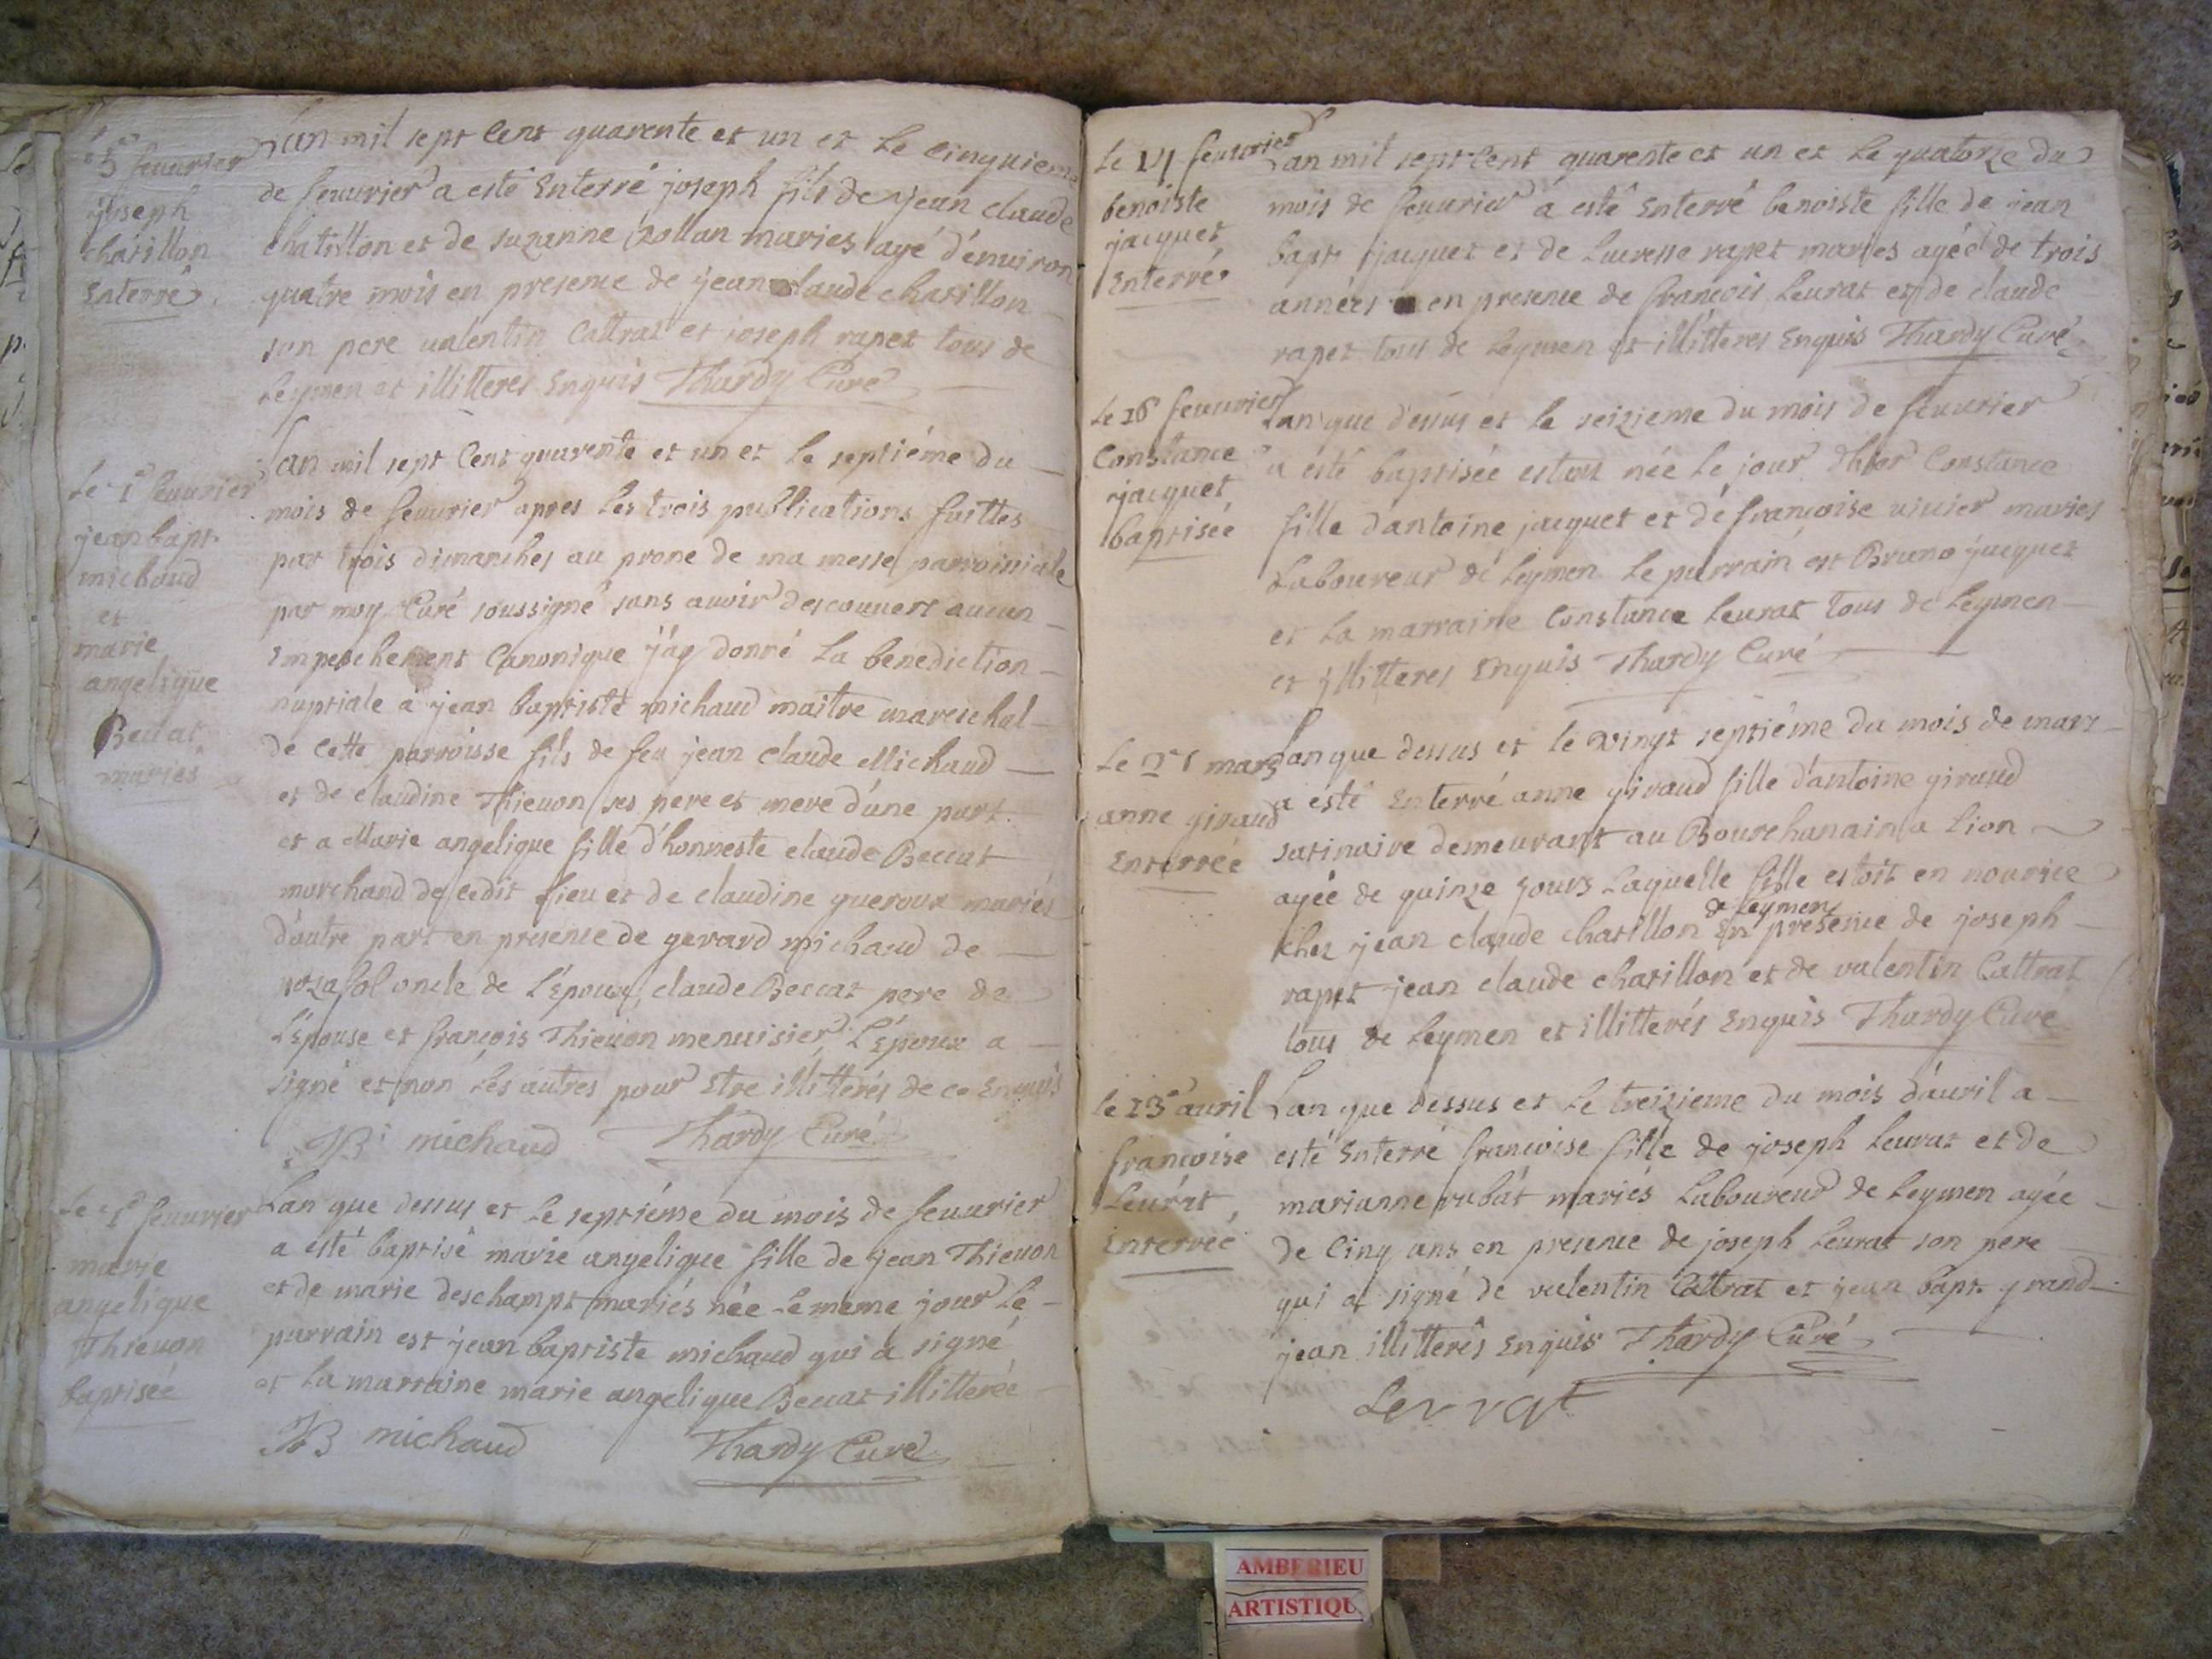 5e feuurier
joseph
chatillon
Enterré
Lan mil sept Cent quarente et un et Le cinquieme
de feuurier a esté Enterré joseph fils de jean claude
chatillon et de suzanne Rollan mariés agé d'enuiron
quatre mois en presence de jean claude chatillon
son pere ualentin Cattrat et joseph rapet tous de
Leymen et illitteres Enquis Thardy Curé
Le feuurier
jean bapt.
michaud
et
marie
angelique
Beccat
mariés
Lan mil sept Cent quarente et un et Le septiéme du
mois de feuurier apres Les trois publications faittes
par trois dimanches au prone de ma messe parroissiale
par moy Curé soussigné sans auoir descouuert aucun
Empeschement Canonique j'ay donné La benediction
nuptiale a jean baptiste michaud maitre mareschal
de Cette parroisse fils de feu jean Claude Michaud
et de claudine Thieuon ses pere et mere d'une part
et a Marie angelique fille d'honneste claude Beccat
marchand de cedit Lieu et de claudine queroux mariés
d'autre part en presence de gerard michaud de
oncle de L'Epoux, claude Beccat pere de
L'Epouse et françois Thieuon menuisier L'Epoux a
signé et non Les autres pour Etre illitterés de ce Enquis
JB michaud Thardy Curé
Le feuurier
marie
angelique
Thieuon
baptisée
Lan que dessus et Le septiéme du mois de feuurier
a esté baptisé marie angelique fille de jean Thieuon
et de marie deschampt mariés née Le meme jour Le
parrain est jean baptiste michaud qui a signé
et La marraine marie angelique Beccat illitterée
JB michaud Thardy Curé
Le 14 feuurier
benoiste
jacquet
Enterré
Lan mil sept Cent quarente et un et Le quatorze du
mois de feuurier a esté Enterré benoiste fille de jean
bapt. jacquet et de Lucresse rapet maries agée de trois
années en presence de françois Leurat et de claude
rapet tous de Leymen et illitteres Enquis Thardy Curé
Le 16 feuurier
Constance
jacquet
baptisée
Lan que dessus et le seizieme du mois de feuurier
a esté baptisée estant née Le jour d'hier Constance
fille dantoine jacquet et de françoise uiuier maries
Laboureur de Leymen Le parrain est Bruno jacquet
et La marraine Constance Leurat tous de Leymen
et jllitteres Enquis Thardy Curé
Le mars
anne giraud
Enterrée
Lan que dessus et le vingt septiéme du mois de mars
a esté Enterré anne giraud fille d'antoine giraud
satinaire demeurant au Bourchanain a Lion
agée de quinze jours Laquelle fille estoit en nourice
de Leymen
chez jean claude chatillon En presence de joseph
rapet jean claude chatillon et de valentin Cattrat
tous de Leymen et illitterés Enquis Thardy Curé
Le 13e auril
françoise
Leurat
Enterrée
Lan que dessus et Le treizieme du mois d'auril a
esté Enterré françoise fille de joseph Leurat et de
marianne rubát mariés Laboureur de Leymen agée
de Cinq ans en presence de joseph Leurat son pere
qui a signé de valentin Cattrat et jean bapt. grand
jean illitterés Enquis Thardy Curé
Levrat
AMBERIEU
ARTISTIQU